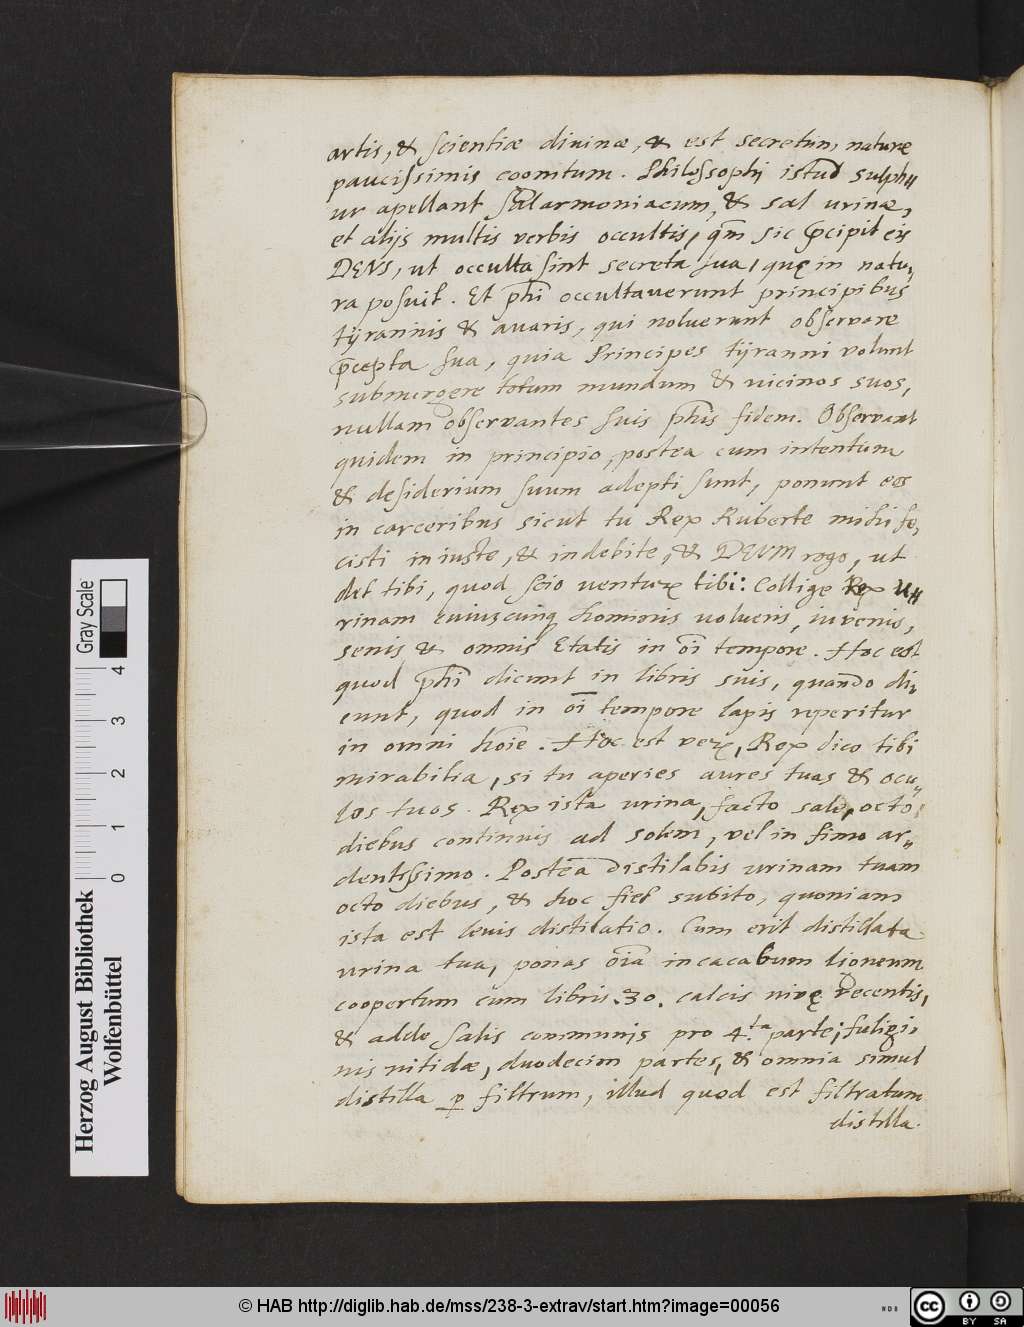 artis, & scientiæ divinæ, & est secretum naturæ
paucissimis coonitum. Philosophi istud sulph=
ur apellant salarmoniacum, & sal urinæ,
et alijs multis verbis occultis, qm̃ sic p̄cipit eis
DEVS, ut occulta sint secreta sua, quę in natu=
ra posuit. Et ph̄i occultaverunt principibus
tyrannis & avaris, qui noluerunt observare
p̄cepta sua, quia Principes tyranni volunt
submergere totum mundum & vicinos suos,
nullam observantes suis ph̄is fidem. Observant
quidem in principio, postea cum intentum
& desiderium suum adepti sunt, ponunt eos
in carceribus sicut tu Rex Ruberte mihi fe,
cisti iniuste, & indebite, & DEVM rogo, ut
det tibi, quod scio ventur̄ tibi: Collige Rex u=
rinam cuiuscunq hominis volueris, iuvenis,
senis & omnis Etatis in oī tempore. Hoc est
quod ph̄i dicunt in libris suis, quando di,
cunt, quod in oī tempore lapis reperitur
in omni hoīe. Hoc est ver̄, Rex dico tibi
mirabilia, si tu aperies aures tuas & ocu=
los tuos. Rex ista urina, facto sale, octo
diebus continuis ad solem, vel in fimo ar=
dentissimo. Postea distilabis urinam tuam
octo diebus, & hoc fiet subito, quoniam
ista est levis distilatio. Cum erit distillata
urina tua, ponas oīa in cacabum lioneum
coopertum cum libris .30. calcis nivę recentis,
& adde salis communis pro 4.ta parte, fuligi,
nis nitidæ, duodecim partes, & omnia simul
distilla p filtrum, illud quod est filtratum
distilla.
Herzog August Bibliothek
Wolfenbüttel
0 1 2 3 4
Gray Scale
© HAB http://diglib.hab.de/mss/238-3-extrav/start.htm?image=00056
NDB
cc BY SA